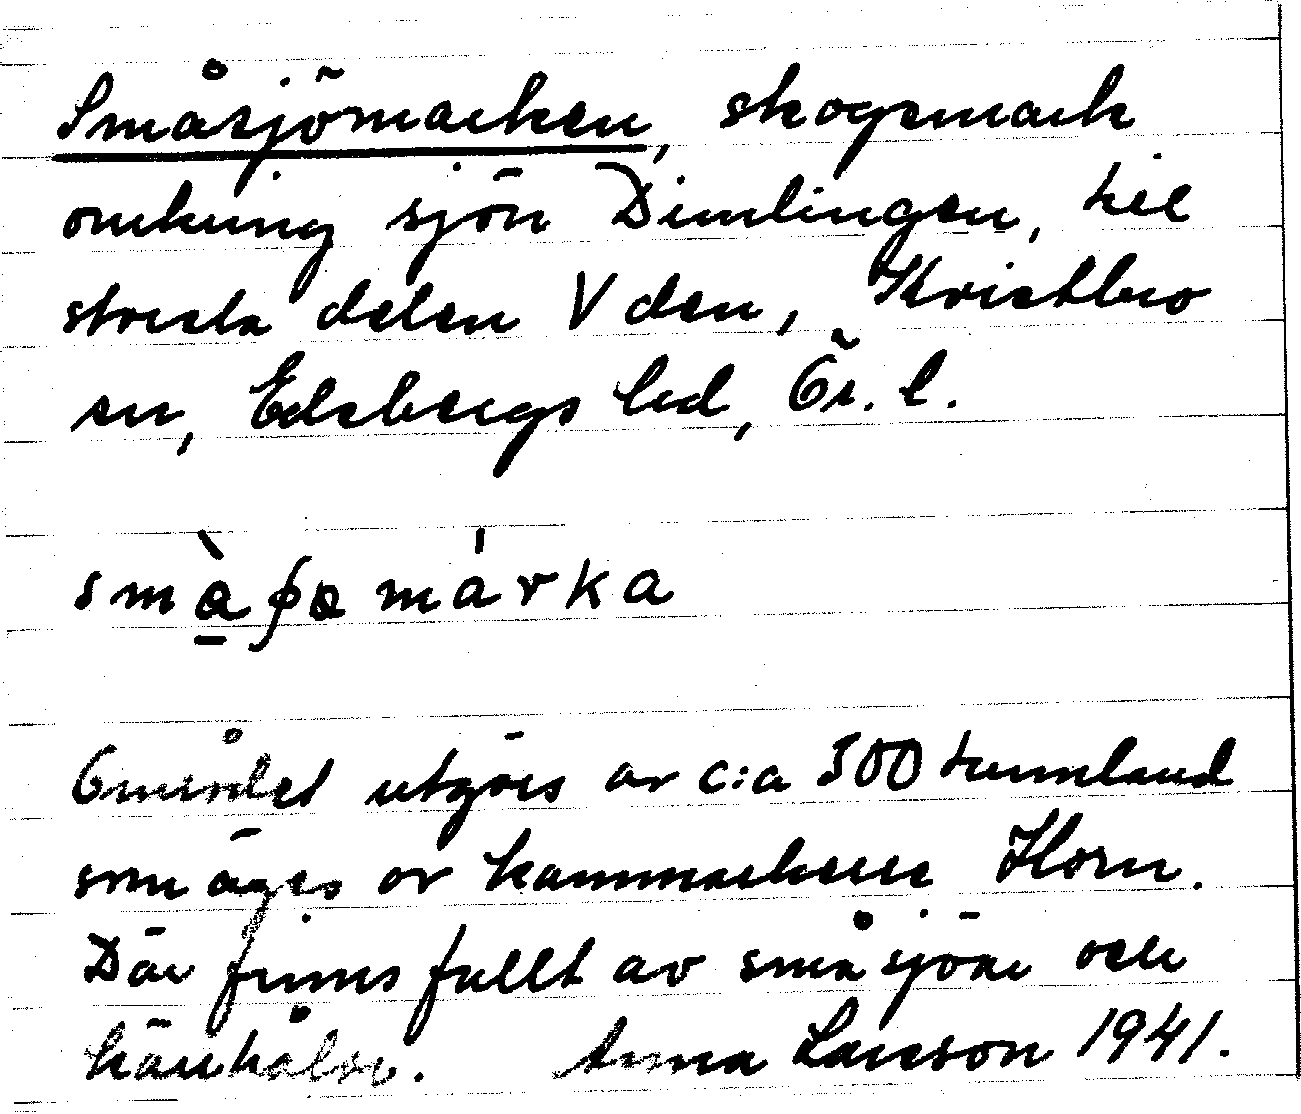 Småsjömarken, skogsmark
omkring sjön Dimlingen, till
största delen V den, Kvistbro
sn, Edsbergs hd, Ör. l.
smàɟa márka
Området utgöres av c:a 500 tunnland
som äges av kammarherre Horn.
Där finns fullt av småsjöar och
kärrhålor. Anna Larsson 1941.